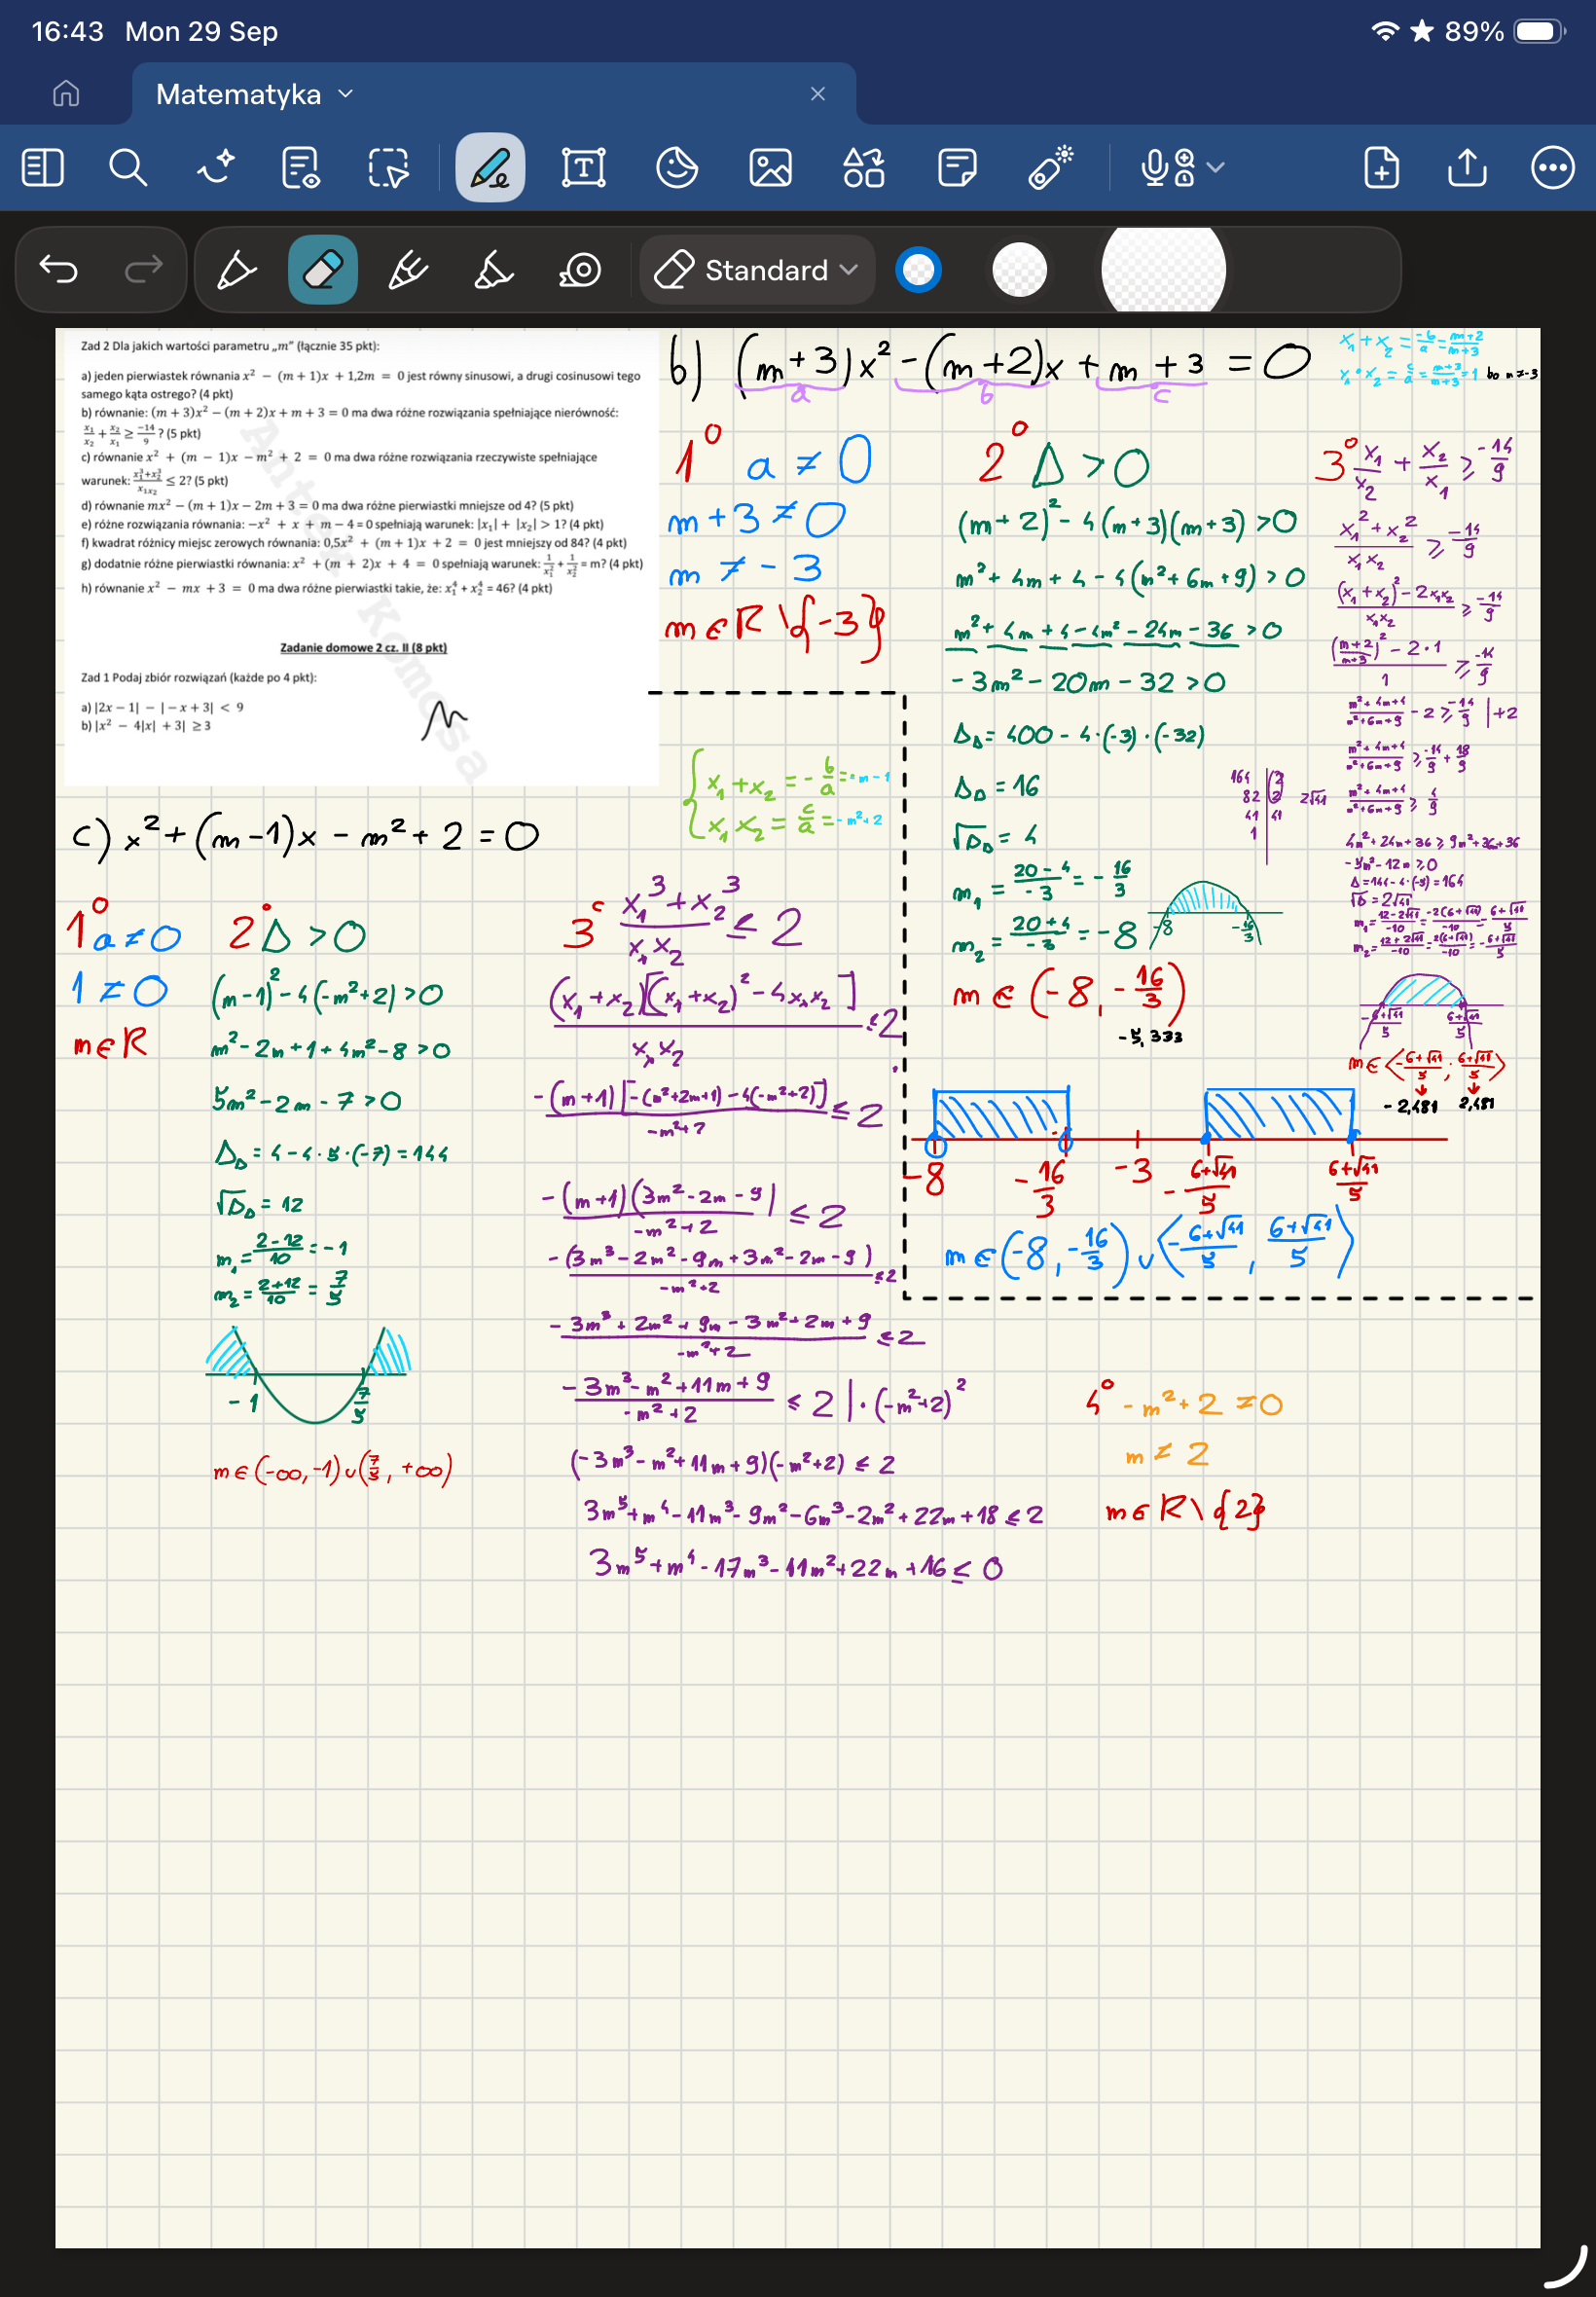 16:43 Mon 29 Sep
89%
Matematyka
Standard
Zad 2 Dla jakich wartości parametru „m” (łącznie 35 pkt):
a) jeden pierwiastek równania x² − (m + 1)x + 1,2m = 0 jest równy sinusowi, a drugi cosinusowi tego
samego kąta ostrego? (4 pkt)
b) równanie: (m + 3)x² − (m + 2)x + m + 3 = 0 ma dwa różne rozwiązania spełniające nierówność:
x₁/x₂ + x₂/x₁ ≥ −14/9 ? (5 pkt)
c) równanie x² + (m − 1)x − m² + 2 = 0 ma dwa różne rozwiązania rzeczywiste spełniające
warunek: (x₁³+x₂³)/(x₁x₂) ≤ 2? (5 pkt)
d) równanie mx² − (m + 1)x − 2m + 3 = 0 ma dwa różne pierwiastki mniejsze od 4? (5 pkt)
e) różne rozwiązania równania: −x² + x + m − 4 = 0 spełniają warunek: |x₁| + |x₂| > 1? (4 pkt)
f) kwadrat różnicy miejsc zerowych równania: 0,5x² + (m + 1)x + 2 = 0 jest mniejszy od 84? (4 pkt)
g) dodatnie różne pierwiastki równania: x² + (m + 2)x + 4 = 0 spełniają warunek: 1/x₁² + 1/x₂² = m? (4 pkt)
h) równanie x² − mx + 3 = 0 ma dwa różne pierwiastki takie, że: x₁⁴ + x₂⁴ = 46? (4 pkt)
Antek Komosa
Zadanie domowe 2 cz. II (8 pkt)
Zad 1 Podaj zbiór rozwiązań (każde po 4 pkt):
a) |2x − 1| − |−x + 3| < 9
b) |x² − 4|x| + 3| ≥ 3
b) (m+3)x² − (m+2)x + m+3 = 0
a b c
x₁ + x₂ = −b/a = (m+2)/(m+3)
x₁ · x₂ = c/a = (m+3)/(m+3) = 1 bo m≠−3
1° a ≠ 0
m + 3 ≠ 0
m ≠ −3
m ∈ R \ {−3}
2° Δ > 0
(m+2)² − 4(m+3)(m+3) > 0
m² + 4m + 4 − 4(m² + 6m + 9) > 0
m² + 4m + 4 − 4m² − 24m − 36 > 0
−3m² − 20m − 32 > 0
Δ_Δ = 400 − 4·(−3)·(−32)
Δ_Δ = 16
√Δ_Δ = 4
m₁ = (20−4)/−3 = −16/3
m₂ = (20+4)/−3 = −8
−8 −16/3
m ∈ (−8, −16/3)
−5,333
3° x₁/x₂ + x₂/x₁ ≥ −14/9
(x₁² + x₂²)/(x₁x₂) ≥ −14/9
((x₁+x₂)² − 2x₁x₂)/(x₁x₂) ≥ −14/9
(((m+2)/(m+3))² − 2·1)/1 ≥ −14/9
(m²+4m+4)/(m²+6m+9) − 2 ≥ −14/9 | +2
(m²+4m+4)/(m²+6m+9) ≥ −14/9 + 18/9
(m²+4m+4)/(m²+6m+9) ≥ 4/9
164 | 2
82 | 2
41 | 41
1
2√41
4m² + 24m + 36 ≥ 9m² + 36m + 36
−5m² − 12m ≥ 0
Δ = 144 − 4·(−5) = 164
√Δ = 2√41
m₁ = (12−2√41)/−10 = −2(6+√41)/−10 = (6+√41)/5
m₂ = (12+2√41)/−10 = 2(6+√41)/−10 = −(6+√41)/5
−(6+√41)/5 (6+√41)/5
m ∈ ⟨−(6+√41)/5, (6+√41)/5⟩
−2,481 2,481
−8 −16/3 −3 −(6+√41)/5 (6+√41)/5
m ∈ (−8, −16/3) ∪ ⟨−(6+√41)/5, (6+√41)/5⟩
{ x₁ + x₂ = −b/a = −m−1
x₁x₂ = c/a = −m²+2
c) x² + (m−1)x − m² + 2 = 0
1° a ≠ 0
1 ≠ 0
m ∈ R
2° Δ > 0
(m−1)² − 4(−m²+2) > 0
m² − 2m + 1 + 4m² − 8 > 0
5m² − 2m − 7 > 0
Δ_Δ = 4 − 4·5·(−7) = 144
√Δ_Δ = 12
m₁ = (2−12)/10 = −1
m₂ = (2+12)/10 = 7/5
−1 7/5
m ∈ (−∞, −1) ∪ (7/5, +∞)
3° (x₁³ + x₂³)/(x₁x₂) ≤ 2
(x₁+x₂)[(x₁+x₂)² − 4x₁x₂]/(x₁x₂) ≤ 2
−(m+1)[−(m²+2m+1) − 4(−m²+2)]/(−m²+2) ≤ 2
−(m+1)(3m² − 2m − 9)/(−m²+2) ≤ 2
−(3m³ − 2m² − 9m + 3m² − 2m − 9)/(−m²+2) ≤ 2
(−3m³ + 2m² + 9m − 3m² + 2m + 9)/(−m²+2) ≤ 2
(−3m³ − m² + 11m + 9)/(−m²+2) ≤ 2 | ·(−m²+2)²
(−3m³ − m² + 11m + 9)(−m²+2) ≤ 2
3m⁵ + m⁴ − 11m³ − 9m² − 6m³ − 2m² + 22m + 18 ≤ 2
3m⁵ + m⁴ − 17m³ − 11m² + 22m + 16 ≤ 0
4° −m² + 2 ≠ 0
m ≠ 2
m ∈ R \ {2}